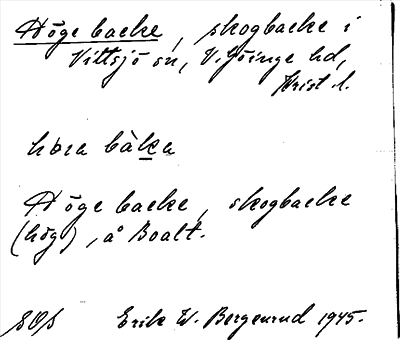 Höge backe, skogbacke i
Vittsjö sn, V. Göinge hd,
Krist. l.
höra bàka
Höge backe, skogbacke
(hög), å Boalt.
Erik W. Bergenrud 1945.